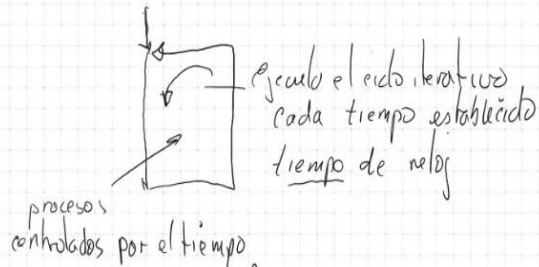 Ejecuto el ciclo iterativo
cada tiempo establecido
tiempo de reloj
procesos
controlados por el tiempo